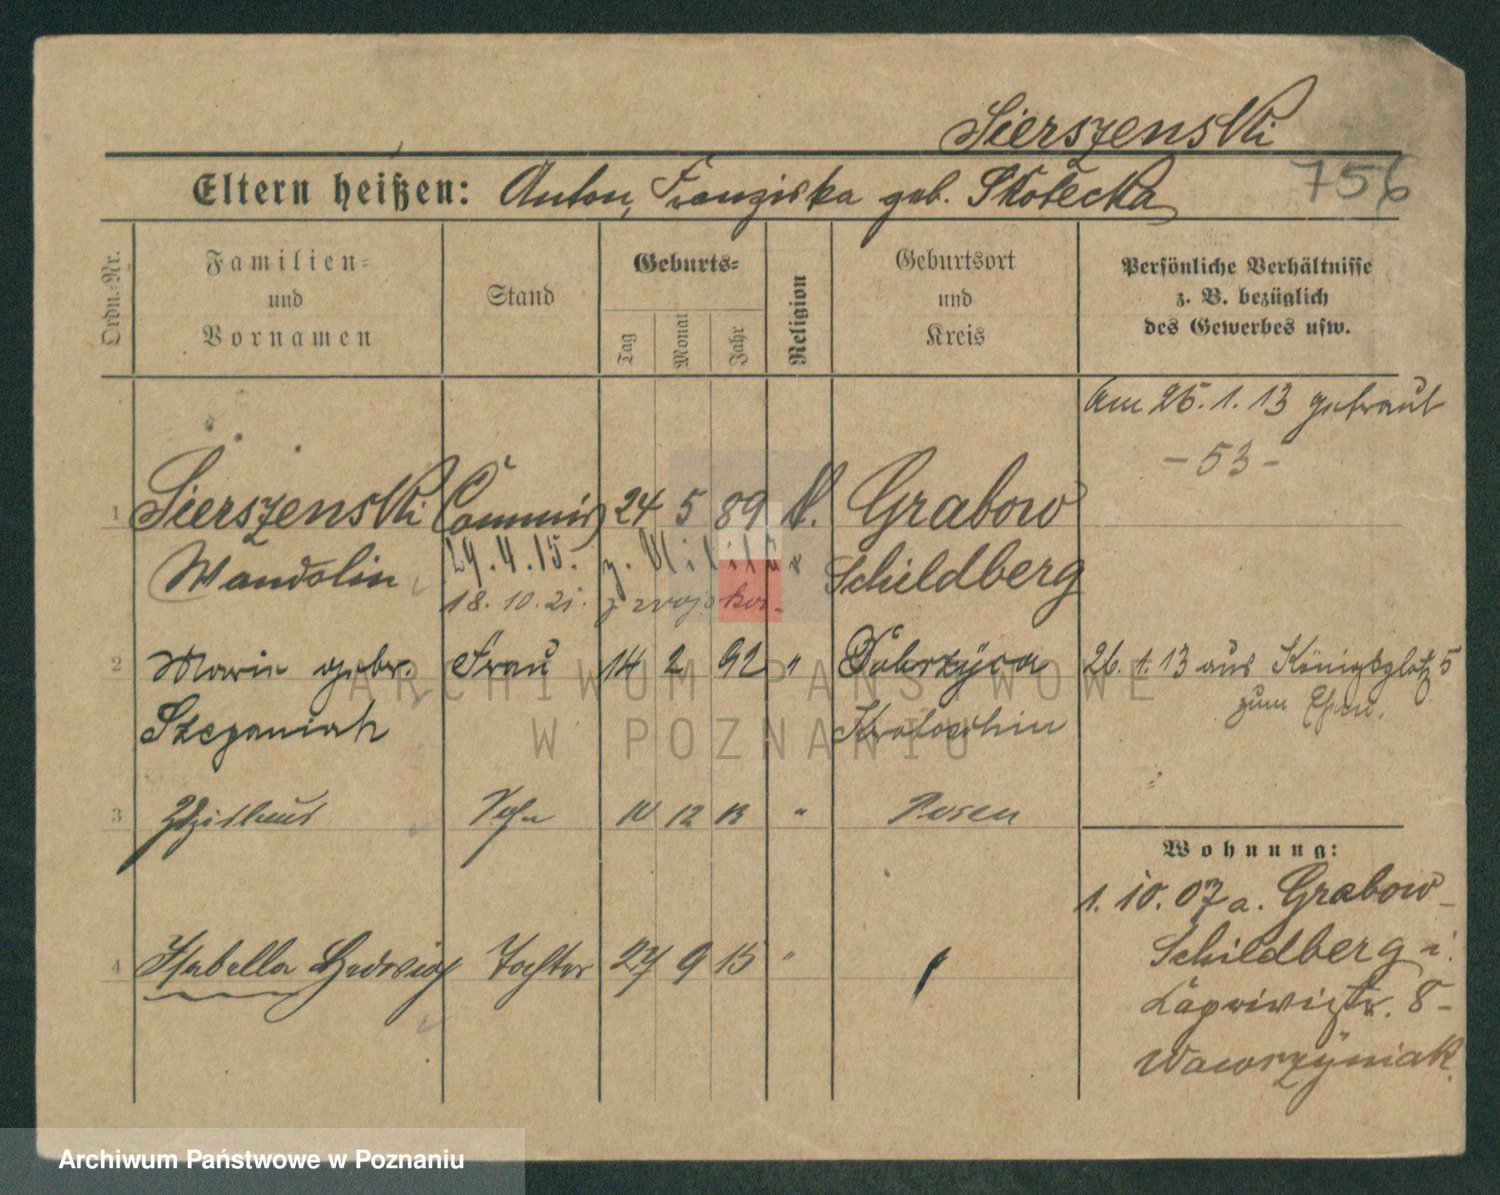 Sierszenski
Eltern heißen: Anton, Franziska geb. Skotecka
756
Ordn.-Nr.
Familien-
und
Vornamen
Stand
Geburts-
Tag
Monat
Jahr
Religion
Geburtsort
und
Kreis
Persönliche Verhältnisse
z. B. bezüglich
des Gewerbes usw.
Am 25.1.13 getraut
-53-
1 Sierszenski Commis 24 5 89 k. Grabow
Wandolin 29.4.15. z. Militär Schildberg
18.10.21. z wojska.
2 Marie gebr. Frau 14 2 92 " Dobrzyca 26.1.13 aus Königsplatz 5
Szczepaniak Krotoschin zum Ehem.
3 Zdzislaus Sohn 10 12 13 " Posen
Wohnung:
1.10.07 a. Grabow-
Schildberg i.
4 Isabella Hedwig Tochter 27 9 15 " "
Caprivistr. 8-
Wawrzyniak.
ARCHIWUM PAŃSTWOWE
W POZNANIU
Archiwum Państwowe w Poznaniu